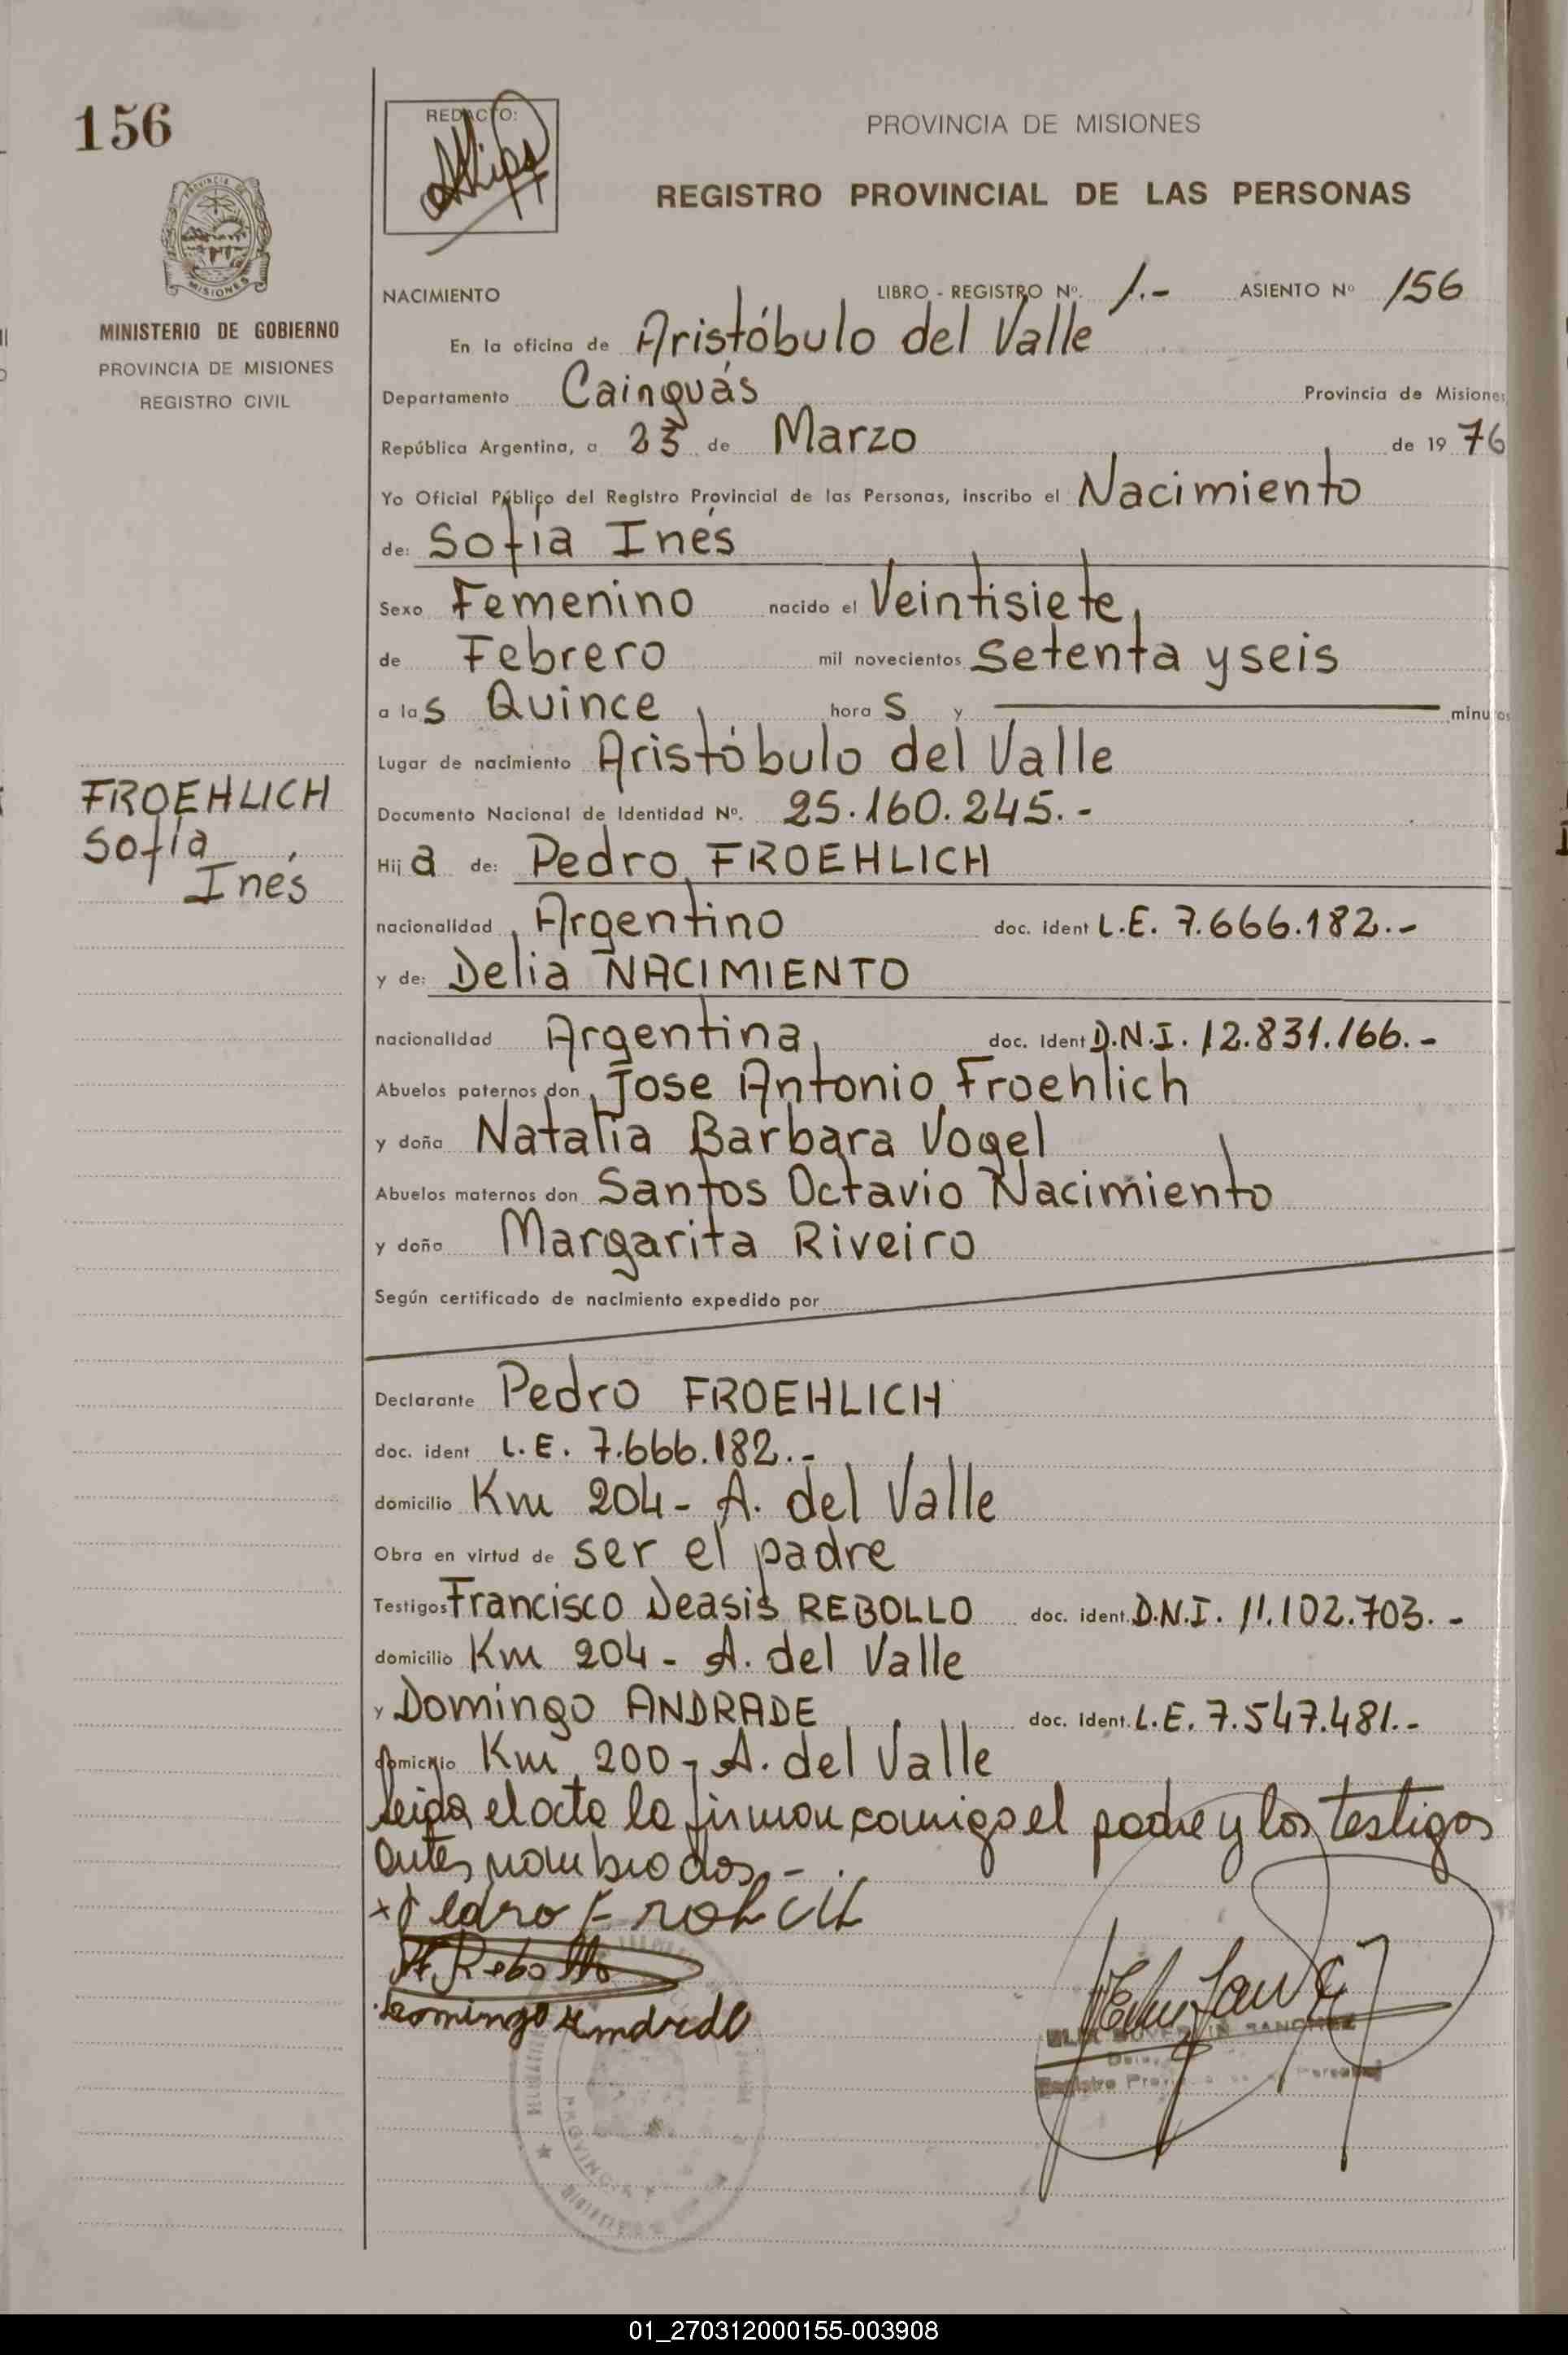 156
REDACTO:
PROVINCIA DE MISIONES
REGISTRO PROVINCIAL DE LAS PERSONAS
MINISTERIO DE GOBIERNO
PROVINCIA DE MISIONES
REGISTRO CIVIL
NACIMIENTO LIBRO - REGISTRO Nº. 1.- ASIENTO Nº 156
En la oficina de Aristóbulo del Valle
Departamento Cainguás Provincia de Misiones
República Argentina, a 23 de Marzo de 1976
Yo Oficial Público del Registro Provincial de las Personas, inscribo el Nacimiento
de: Sofía Inés
Sexo Femenino nacido el Veintisiete
de Febrero mil novecientos setenta y seis
a las Quince horas y minutos
Lugar de nacimiento Aristóbulo del Valle
Documento Nacional de Identidad Nº. 25.160.245.-
FROEHLICH
Sofía
Inés
Hija de: Pedro FROEHLICH
nacionalidad Argentino doc. ident L.E. 7.666.182.-
y de: Delia NACIMIENTO
nacionalidad Argentina doc. ident D.N.I. 12.831.166.-
Abuelos paternos don Jose Antonio Froehlich
y doña Natalia Barbara Vogel
Abuelos maternos don Santos Octavio Nacimiento
y doña Margarita Riveiro
Según certificado de nacimiento expedido por
Declarante Pedro FROEHLICH
doc. ident L.E. 7.666.182.-
domicilio Km 204- A. del Valle
Obra en virtud de ser el padre
Testigos Francisco Deasis REBOLLO doc. ident. D.N.I. 11.102.703.-
domicilio Km 204 - A. del Valle
y Domingo ANDRADE doc. Ident. L.E. 7.547.481.-
domicilio Km 200- A. del Valle
Leida el acta la firman comigo el padre y los testigos
antes nombrados.-
Pedro Frohlich
F Rebollo
Domingo Andrade
SANCHEZ
Registro
PROVINCIA
01_270312000155-003908